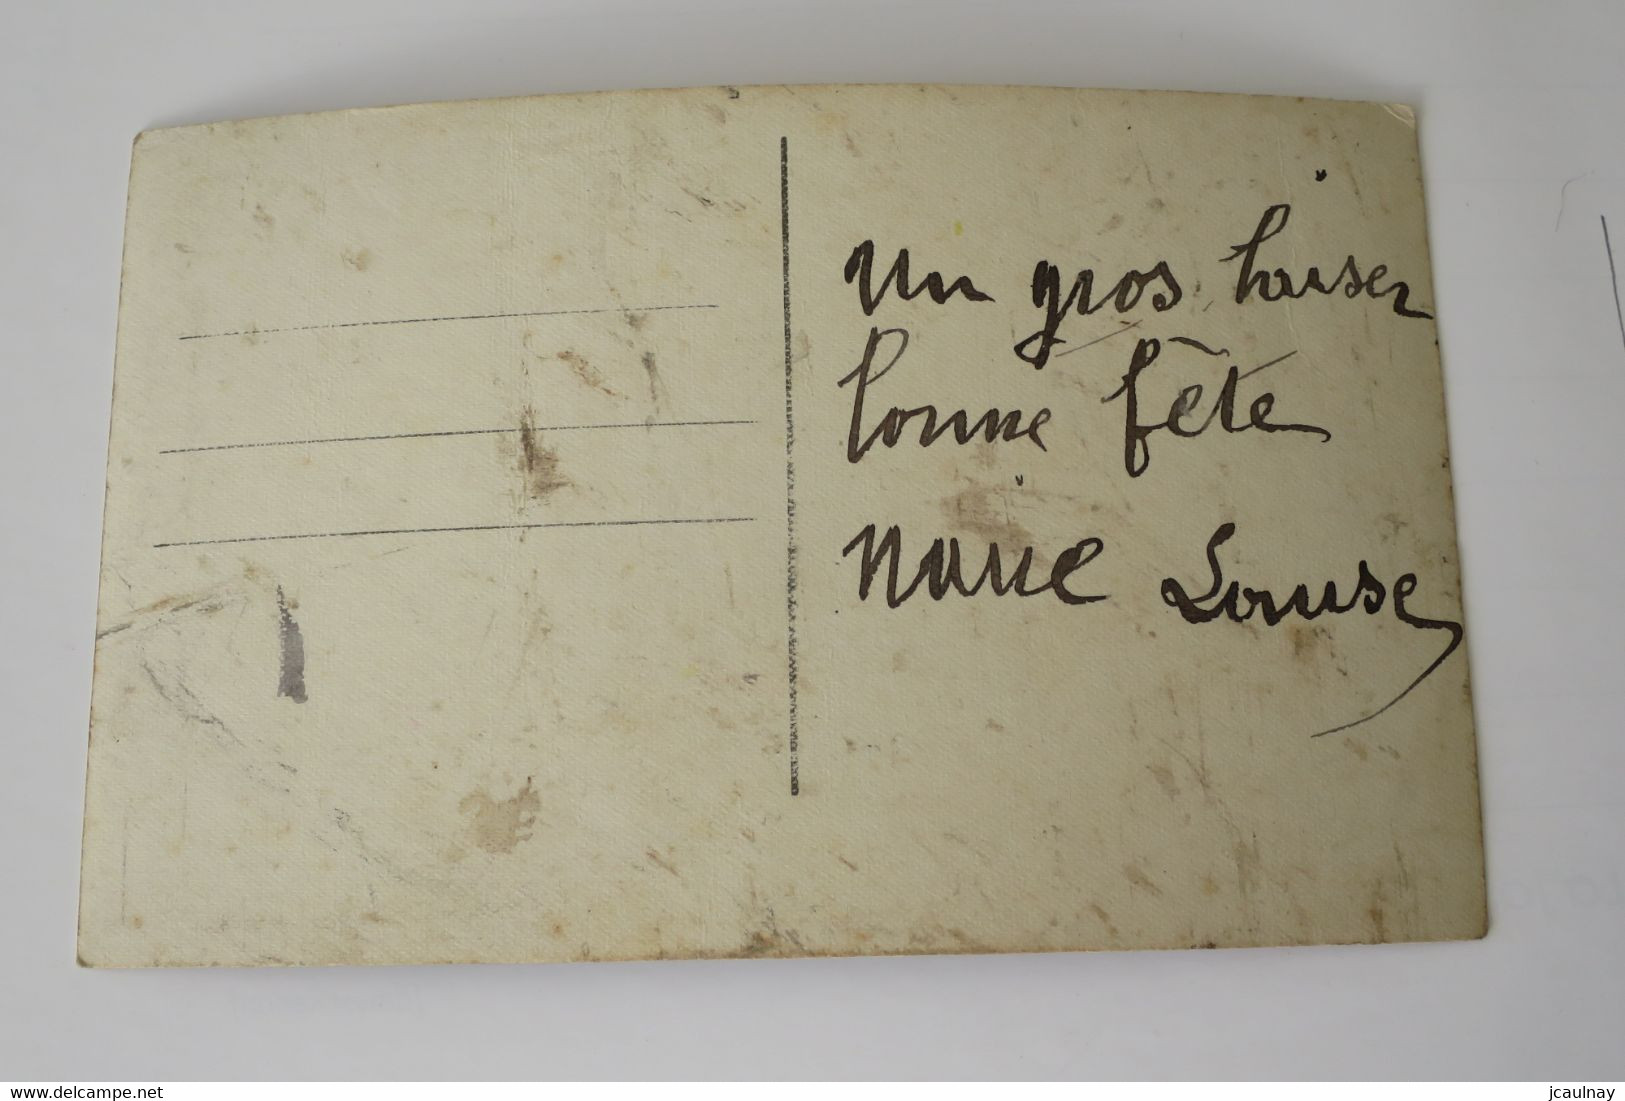 un gros baiser
bonne fête
Marie Louise
www.delcampe.net
jcaulnay